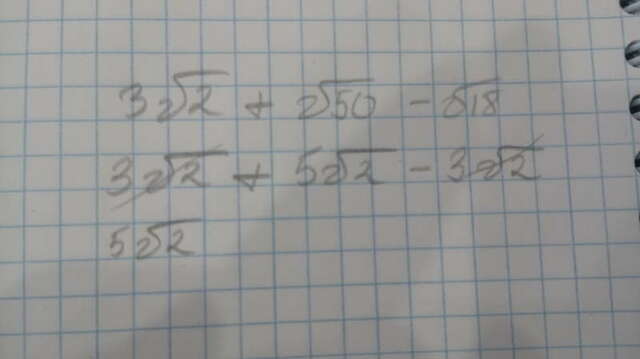 3√2 + √50 - √18
3√2 + 5√2 - 3√2
5√2